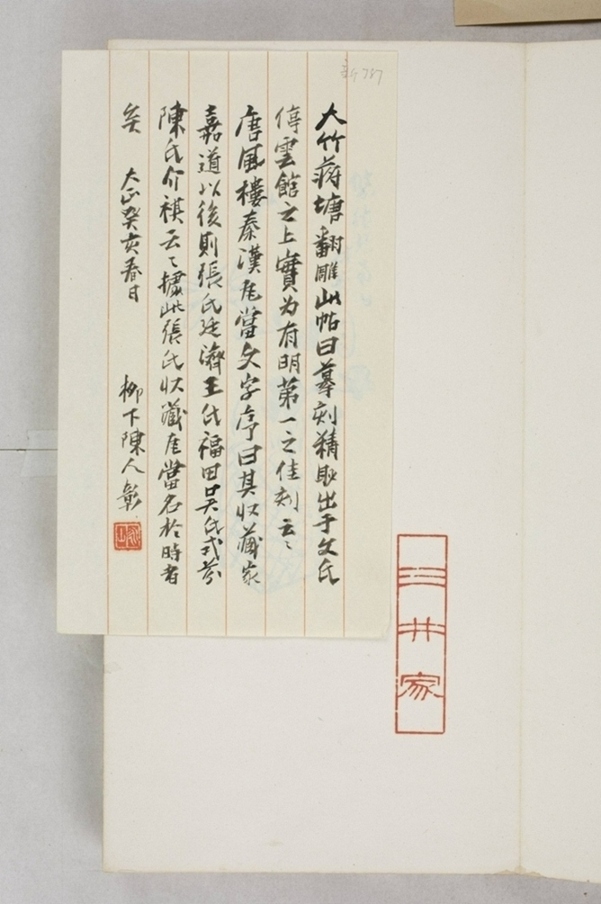 大竹蒋塘翻雕此帖曰摹刻精耿出于文氏
停雲館之上實为有明第一之佳刻云〻
唐風樓秦漢瓦當文字序曰其收藏家
嘉道以後則張氏廷濟王氏福田吴氏式芬
陳氏介祺云〻據此張氏收藏瓦當名於時者
矣 大正癸亥春日 柳下陳人彰
三井家